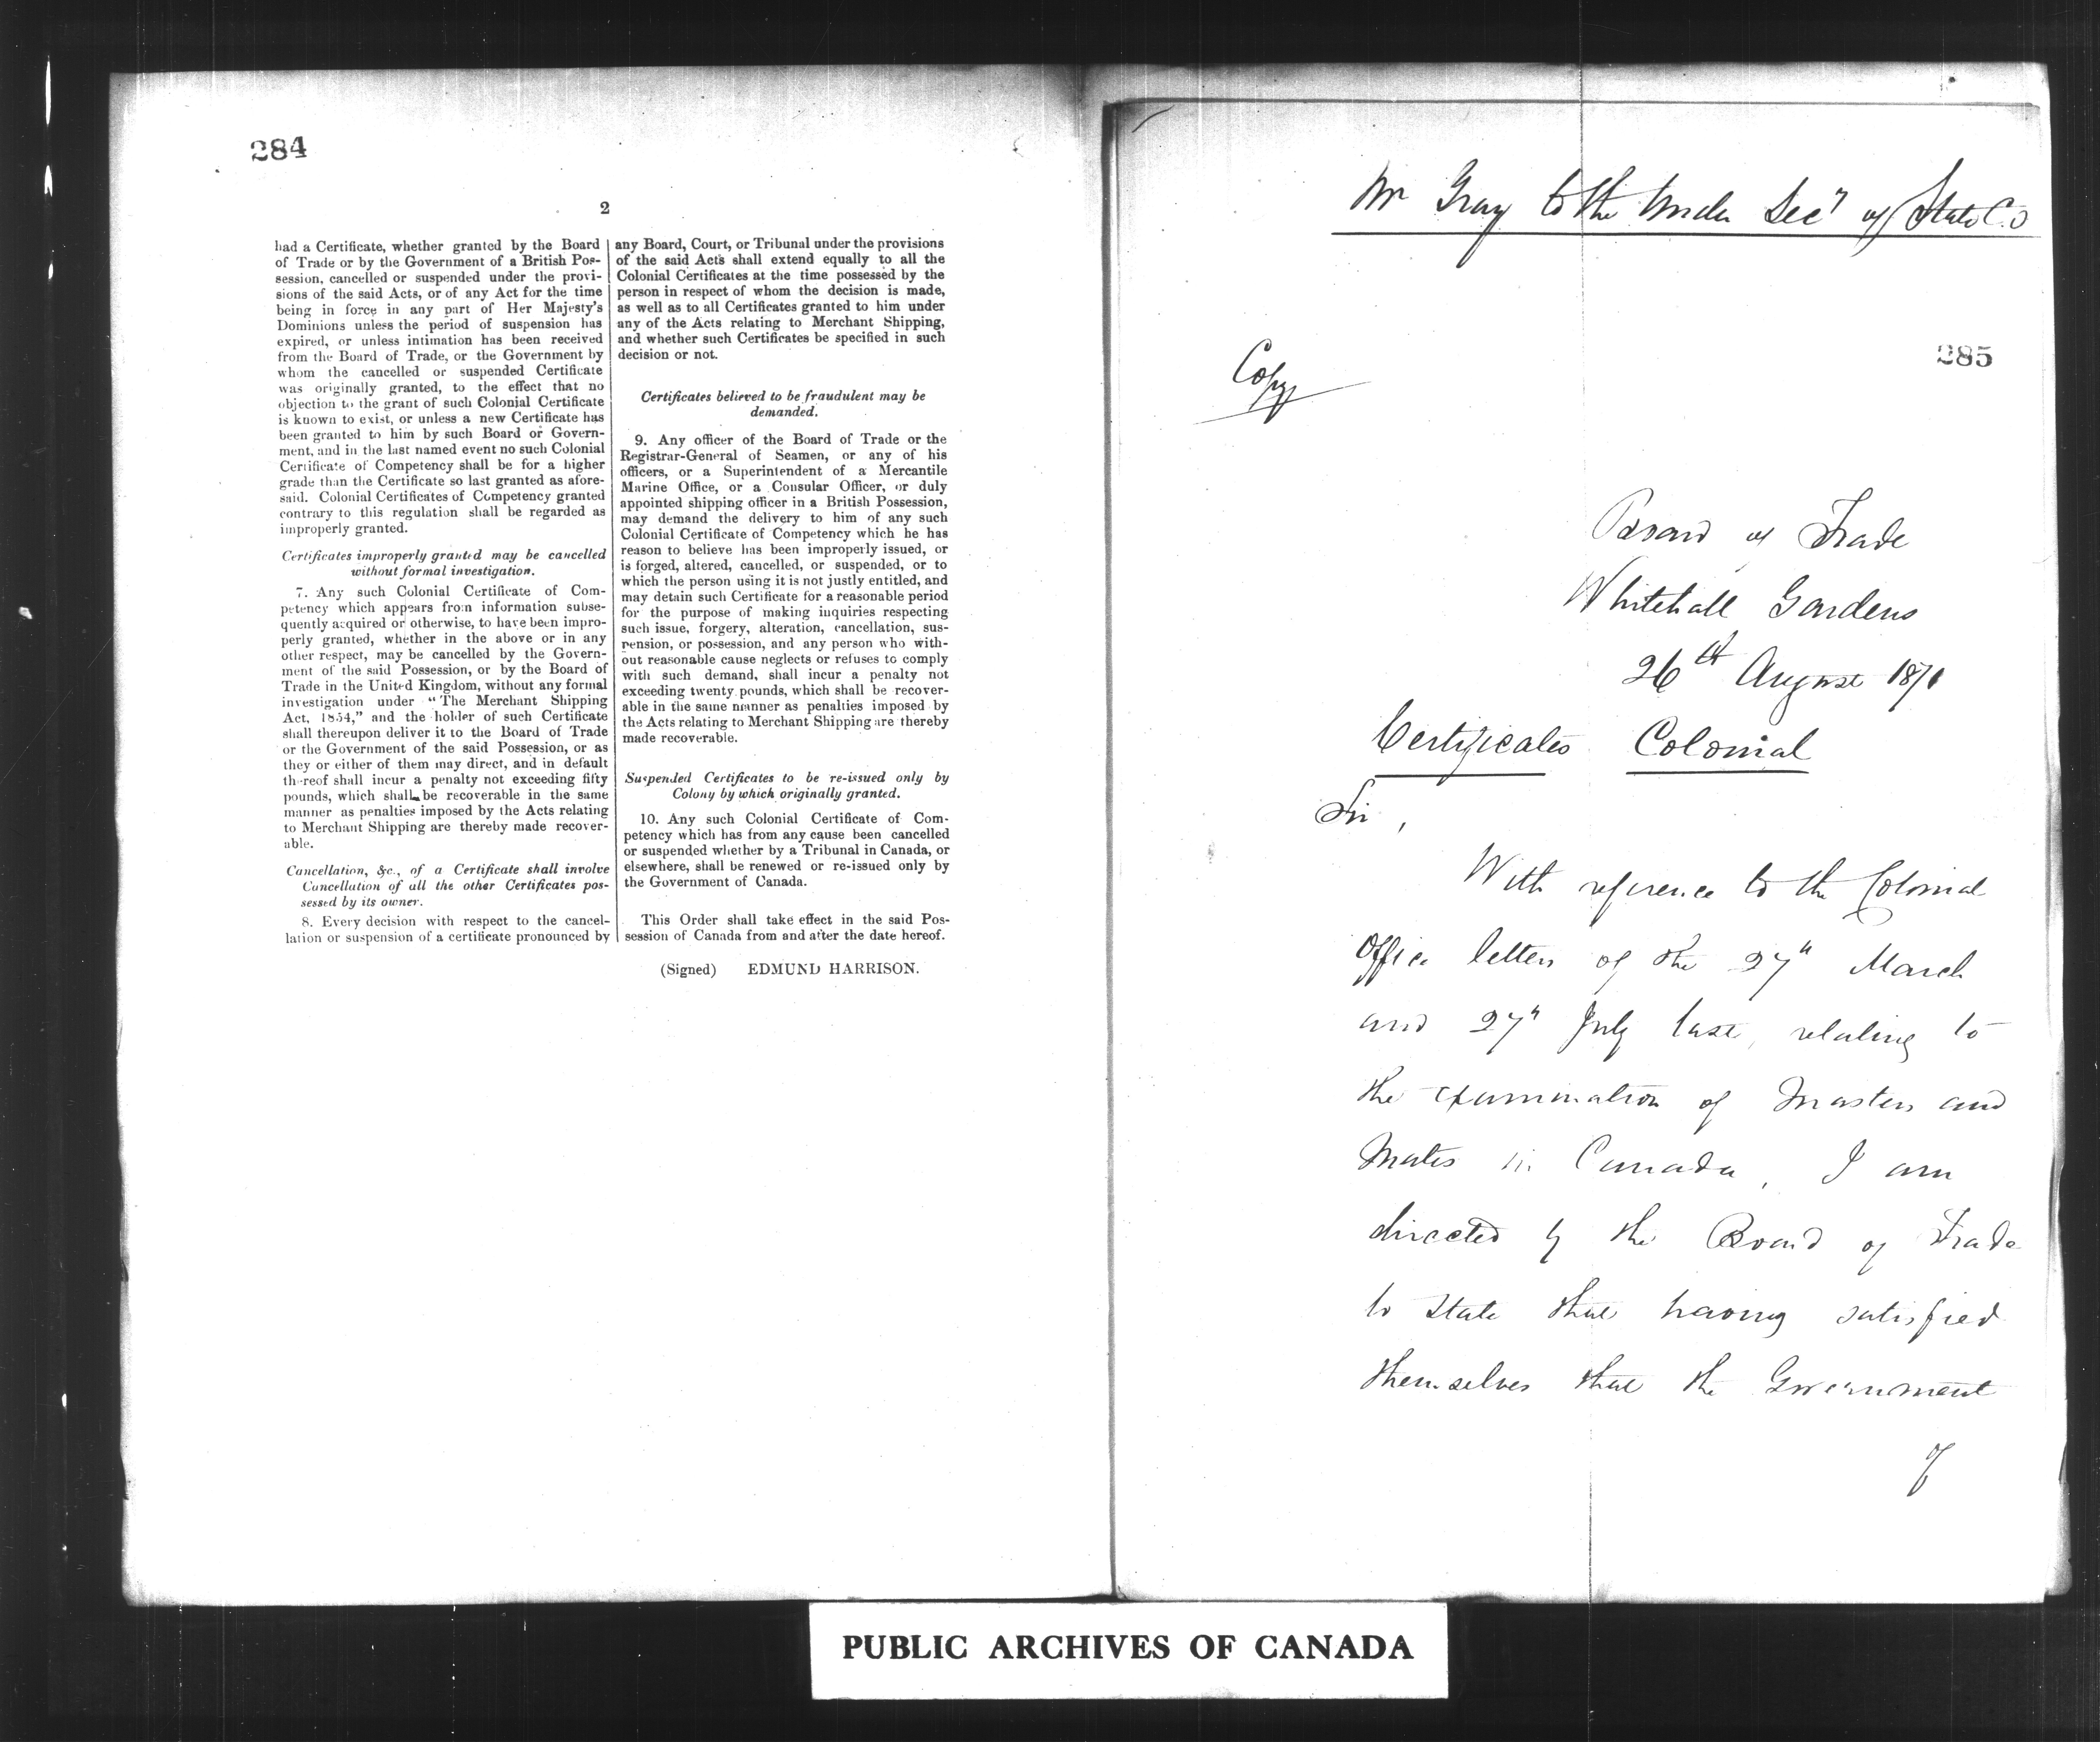 284
2
had a Certificate, whether granted by the Board
of Trade or by the Government of a British Pos-
session, cancelled or suspended under the provi-
sions of the said Acts, or of any Act for the time
being in force in any part of Her Majesty's
Dominions unless the period of suspension has
expired, or unless intimation has been received
from the Board of Trade, or the Government by
whom the cancelled or suspended Certificate
was originally granted, to the effect that no
objection to the grant of such Colonial Certificate
is known to exist, or unless a new Certificate has
been granted to him by such Board or Govern-
ment, and in the last named event no such Colonial
Certificate of Competency shall be for a higher
grade than the Certificate so last granted as afore-
said. Colonial Certificates of Competency granted
contrary to this regulation shall be regarded as
improperly granted.
Certificates improperly granted may be cancelled
without formal investigation.
7. Any such Colonial Certificate of Com-
petency which appears from information subse-
quently acquired or otherwise, to have been impro-
perly granted, whether in the above or in any
other respect, may be cancelled by the Govern-
ment of the said Possession, or by the Board of
Trade in the United Kingdom, without any formal
investigation under "The Merchant Shipping
Act, 1854," and the holder of such Certificate
shall thereupon deliver it to the Board of Trade
or the Government of the said Possession, or as
they or either of them may direct, and in default
thereof shall incur a penalty not exceeding fifty
pounds, which shall be recoverable in the same
manner as penalties imposed by the Acts relating
to Merchant Shipping are thereby made recover-
able.
Cancellation, &c., of a Certificate shall involve
Cancellation of all the other Certificates pos-
sessed by its owner.
8. Every decision with respect to the cancel-
lation or suspension of a certificate pronounced by
any Board, Court, or Tribunal under the provisions
of the said Acts shall extend equally to all the
Colonial Certificates at the time possessed by the
person in respect of whom the decision is made,
as well as to all Certificates granted to him under
any of the Acts relating to Merchant Shipping,
and whether such Certificates be specified in such
decision or not.
Certificates believed to be fraudulent may be
demanded.
9. Any officer of the Board of Trade or the
Registrar-General of Seamen, or any of his
officers, or a Superintendent of a Mercantile
Marine Office, or a Consular Officer, or duly
appointed shipping officer in a British Possession,
may demand the delivery to him of any such
Colonial Certificate of Competency which he has
reason to believe has been improperly issued, or
is forged, altered, cancelled, or suspended, or to
which the person using it is not justly entitled, and
may detain such Certificate for a reasonable period
for the purpose of making inquiries respecting
such issue, forgery, alteration, cancellation, sus-
pension, or possession, and any person who with-
out reasonable cause neglects or refuses to comply
with such demand, shall incur a penalty not
exceeding twenty pounds, which shall be recover-
able in the same manner as penalties imposed by
the Acts relating to Merchant Shipping are thereby
made recoverable.
Suspended Certificates to be re-issued only by
Colony by which originally granted.
10. Any such Colonial Certificate of Com-
petency which has from any cause been cancelled
or suspended whether by a Tribunal in Canada, or
elsewhere, shall be renewed or re-issued only by
the Government of Canada.
This Order shall take effect in the said Pos-
session of Canada from and after the date hereof.
(Signed) EDMUND HARRISON.
Mr Gray to the Under Secy of State C.O
285
Copy
Board of Trade
Whitehall Gardens
26th August 1871
Certificates Colonial
Sir,
With reference to the Colonial
Office letters of the 27th March
and 27th July last, relating to
the examination of Masters and
Mates in Canada, I am
directed by the Board of Trade
to state that having satisfied
themselves that the Government
of
PUBLIC ARCHIVES OF CANADA